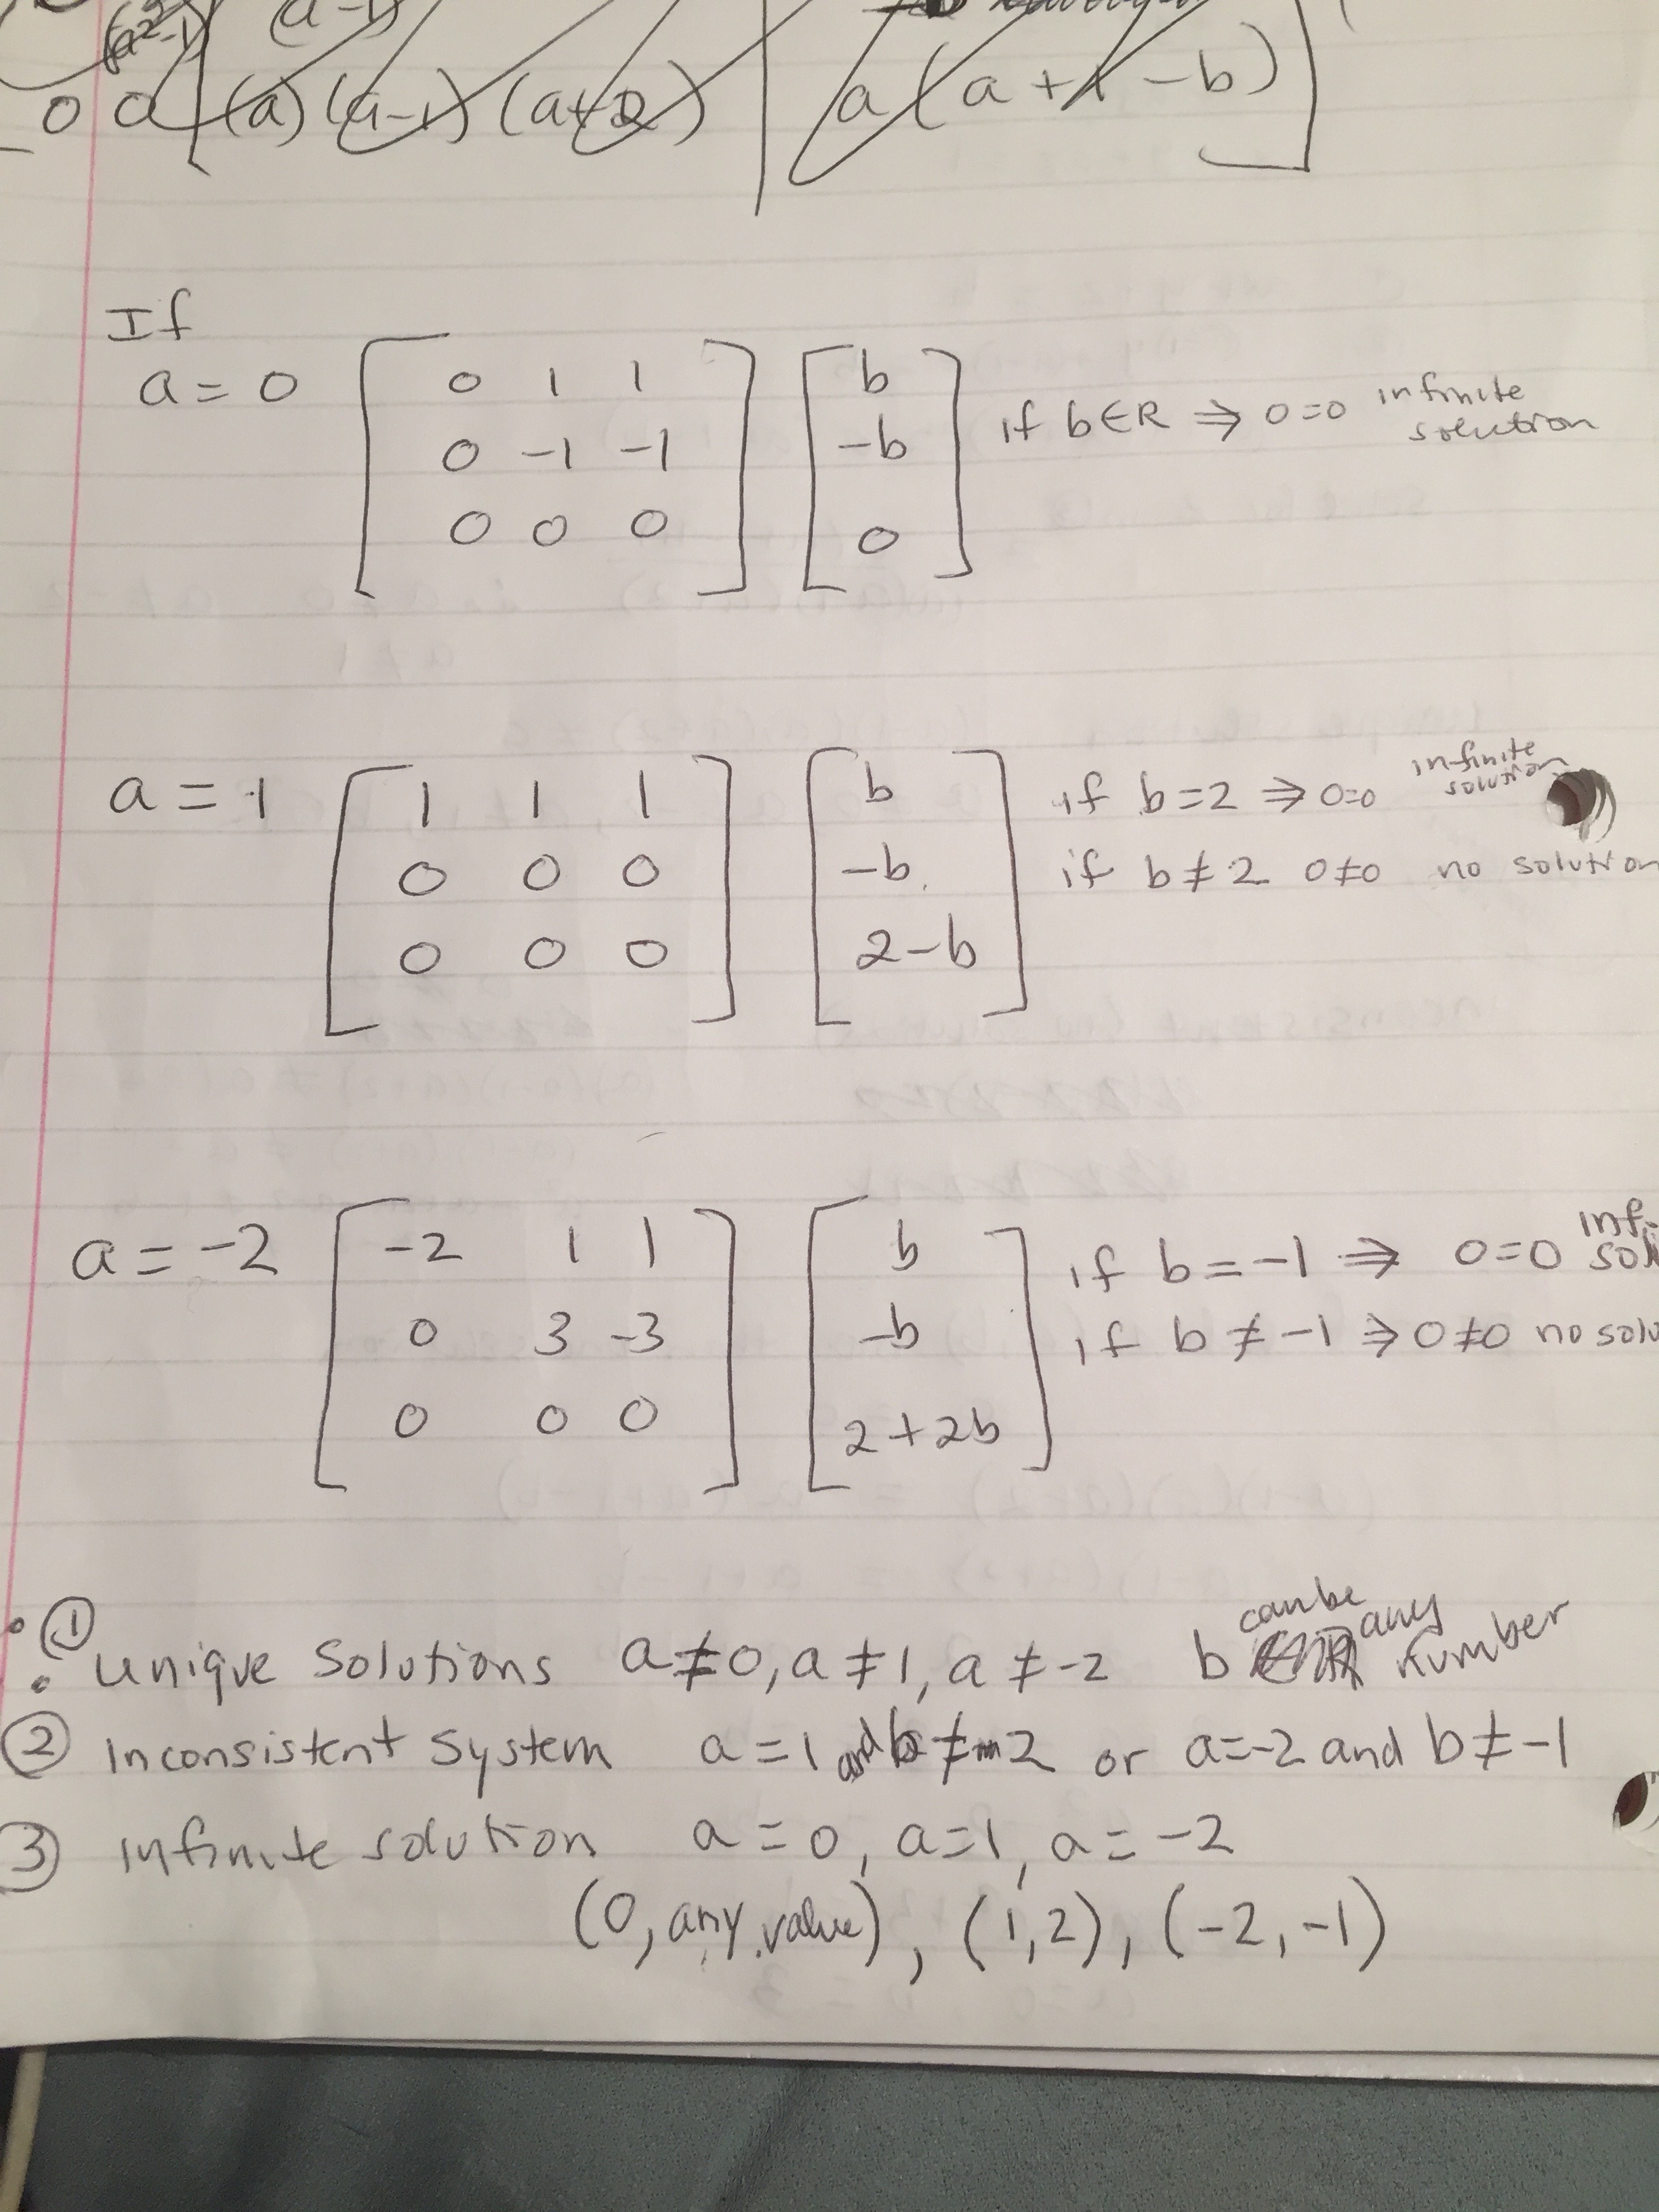 (a²-1) (a-1)
0 0 (a)(a-1)(a+2) a(a+1-b)
If
a = 0 [0 1 1] [b] if b∈R ⇒ 0=0 infinite solution
0 -1 -1 -b
0 0 0 0
a = 1 [1 1 1] [b] if b=2 ⇒ 0=0 infinite solution
0 0 0 -b if b≠2 0≠0 no solution
0 0 0 2-b
a = -2 [-2 1 1] [b] if b=-1 ⇒ 0=0 inf. sol
0 3 -3 -b if b≠-1 ⇒ 0≠0 no solu
0 0 0 2+2b
① unique solutions a≠0, a≠1, a≠-2 b can be any number
② inconsistent system a=1 and b≠2 or a=-2 and b≠-1
③ infinite solution a=0, a=1, a=-2
(0, any value), (1,2), (-2,-1)